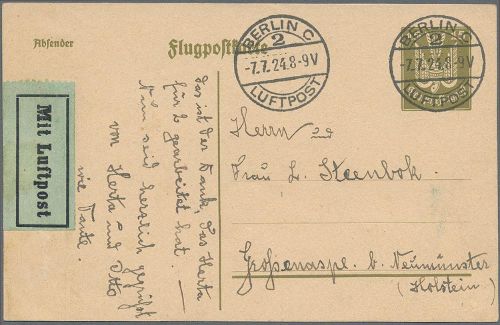 Absender
Flugpostkarte
BERLIN C
2
-7.7.24.8-9V
LUFTPOST
BERLIN C
2
-7.7.24.8-9V
LUFTPOST
Mit Luftpost
das ist der Dank, das Herta
für 2 gearbeitet hat. —
Nun seid herzlich gegrüßt
von Herta und Otto
wie Tante.
Herrn und
Frau L. Steenbok.
Großenaspe b. Neumünster
(Holstein)